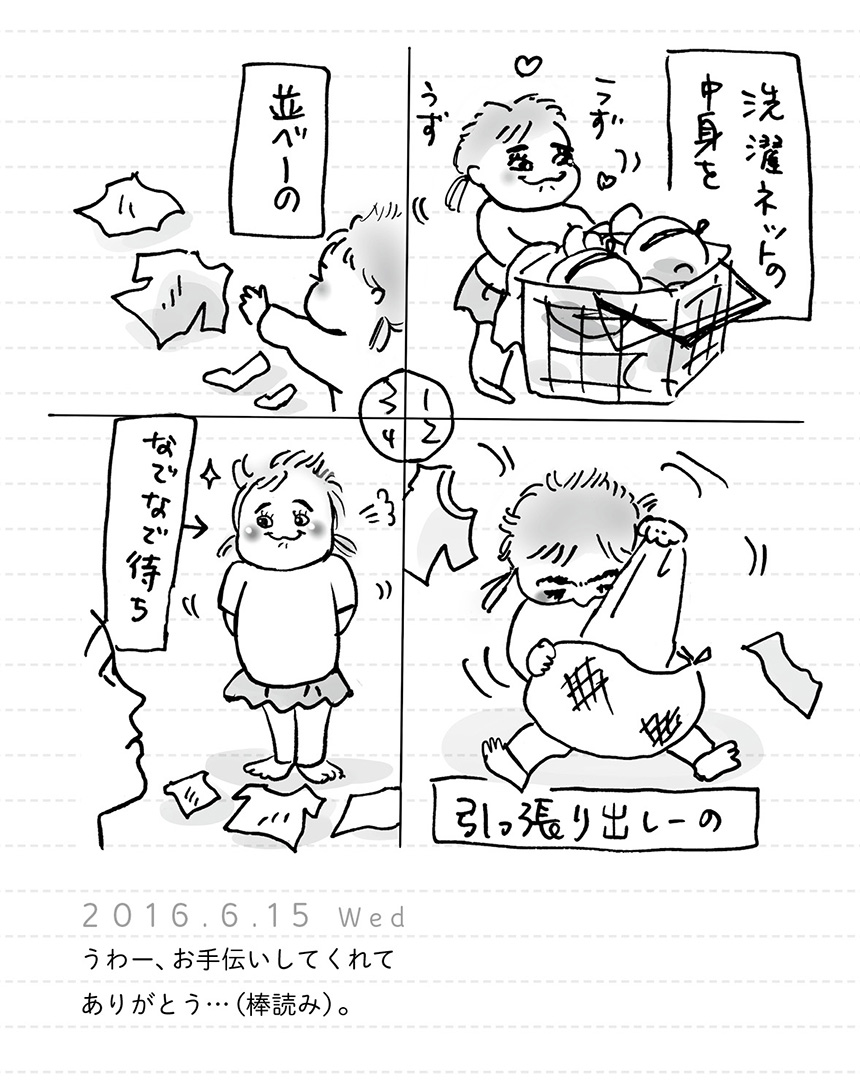 洗濯ネットの
中身を
うず
うず
1
2
3
4
引っ張り出しーの
並べーの
なでなで待ち
2016.6.15 Wed
うわー、お手伝いしてくれて
ありがとう…（棒読み）。